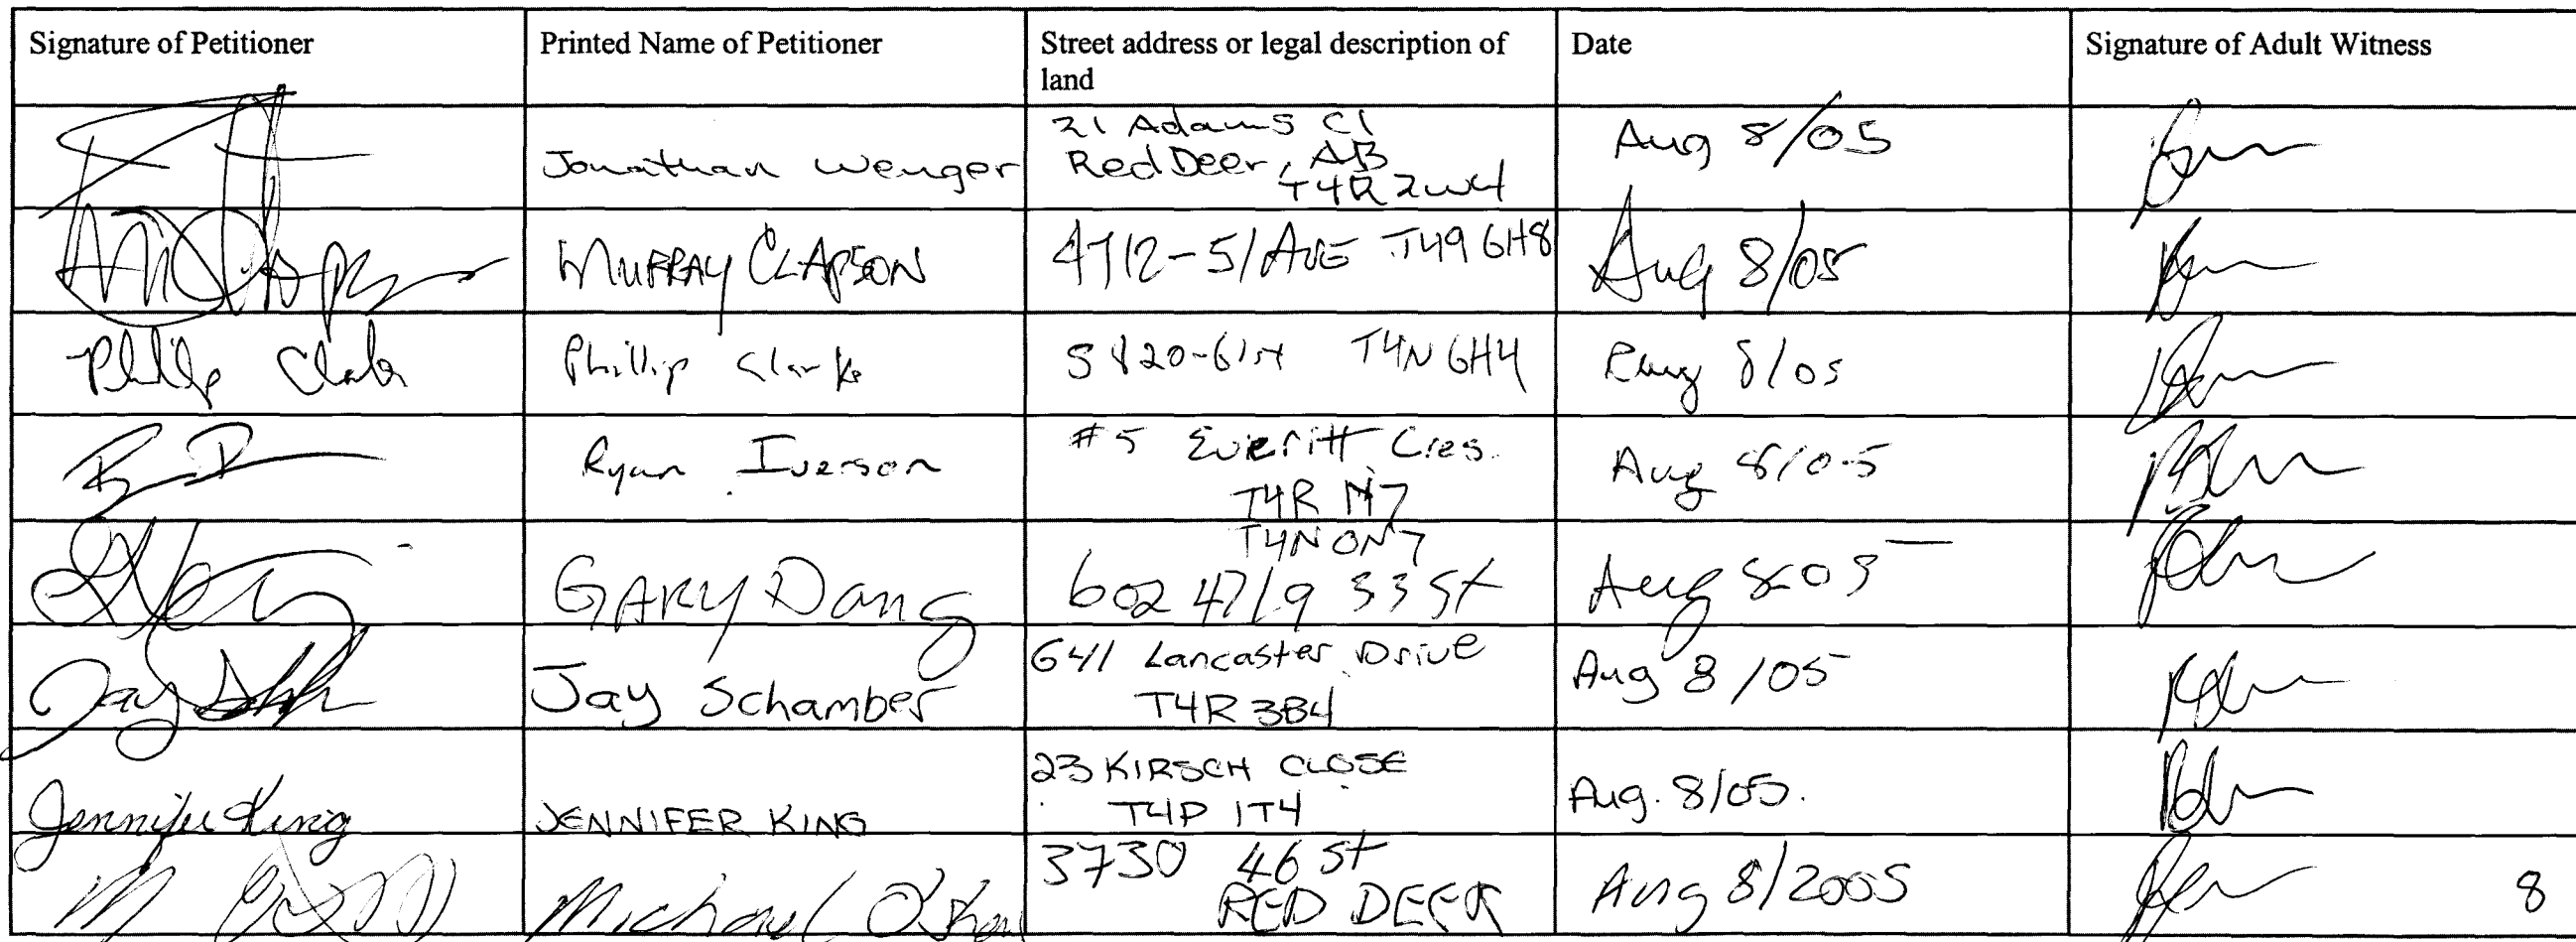 Signature of Petitioner
Printed Name of Petitioner
Street address or legal description of
land
Date
Signature of Adult Witness
Jonathan Wenger
21 Adams Cl
Red Deer, AB
T4R 2W4
Aug 8/05
MURRAY CLAPSON
4712-51 AVE T49 6H8
Aug 8/05
Phillip Clarke
Phillip Clarke
5820-61st T4N 6H4
Aug 8/05
Ryan Iverson
#5 Everitt Cres.
T4R
Aug 8/05
GARY Dang
T4N 0N7
602 4719 33 St
Aug 8-05
Jay
Jay Schamber
641 Lancaster Drive
T4R 3B4
Aug 8/05
Jennifer King
JENNIFER KING
23 KIRSCH CLOSE
T4P 1T4
Aug. 8/05.
M
Michael
3730 46 St
RED DEER
Aug 8/2005
8